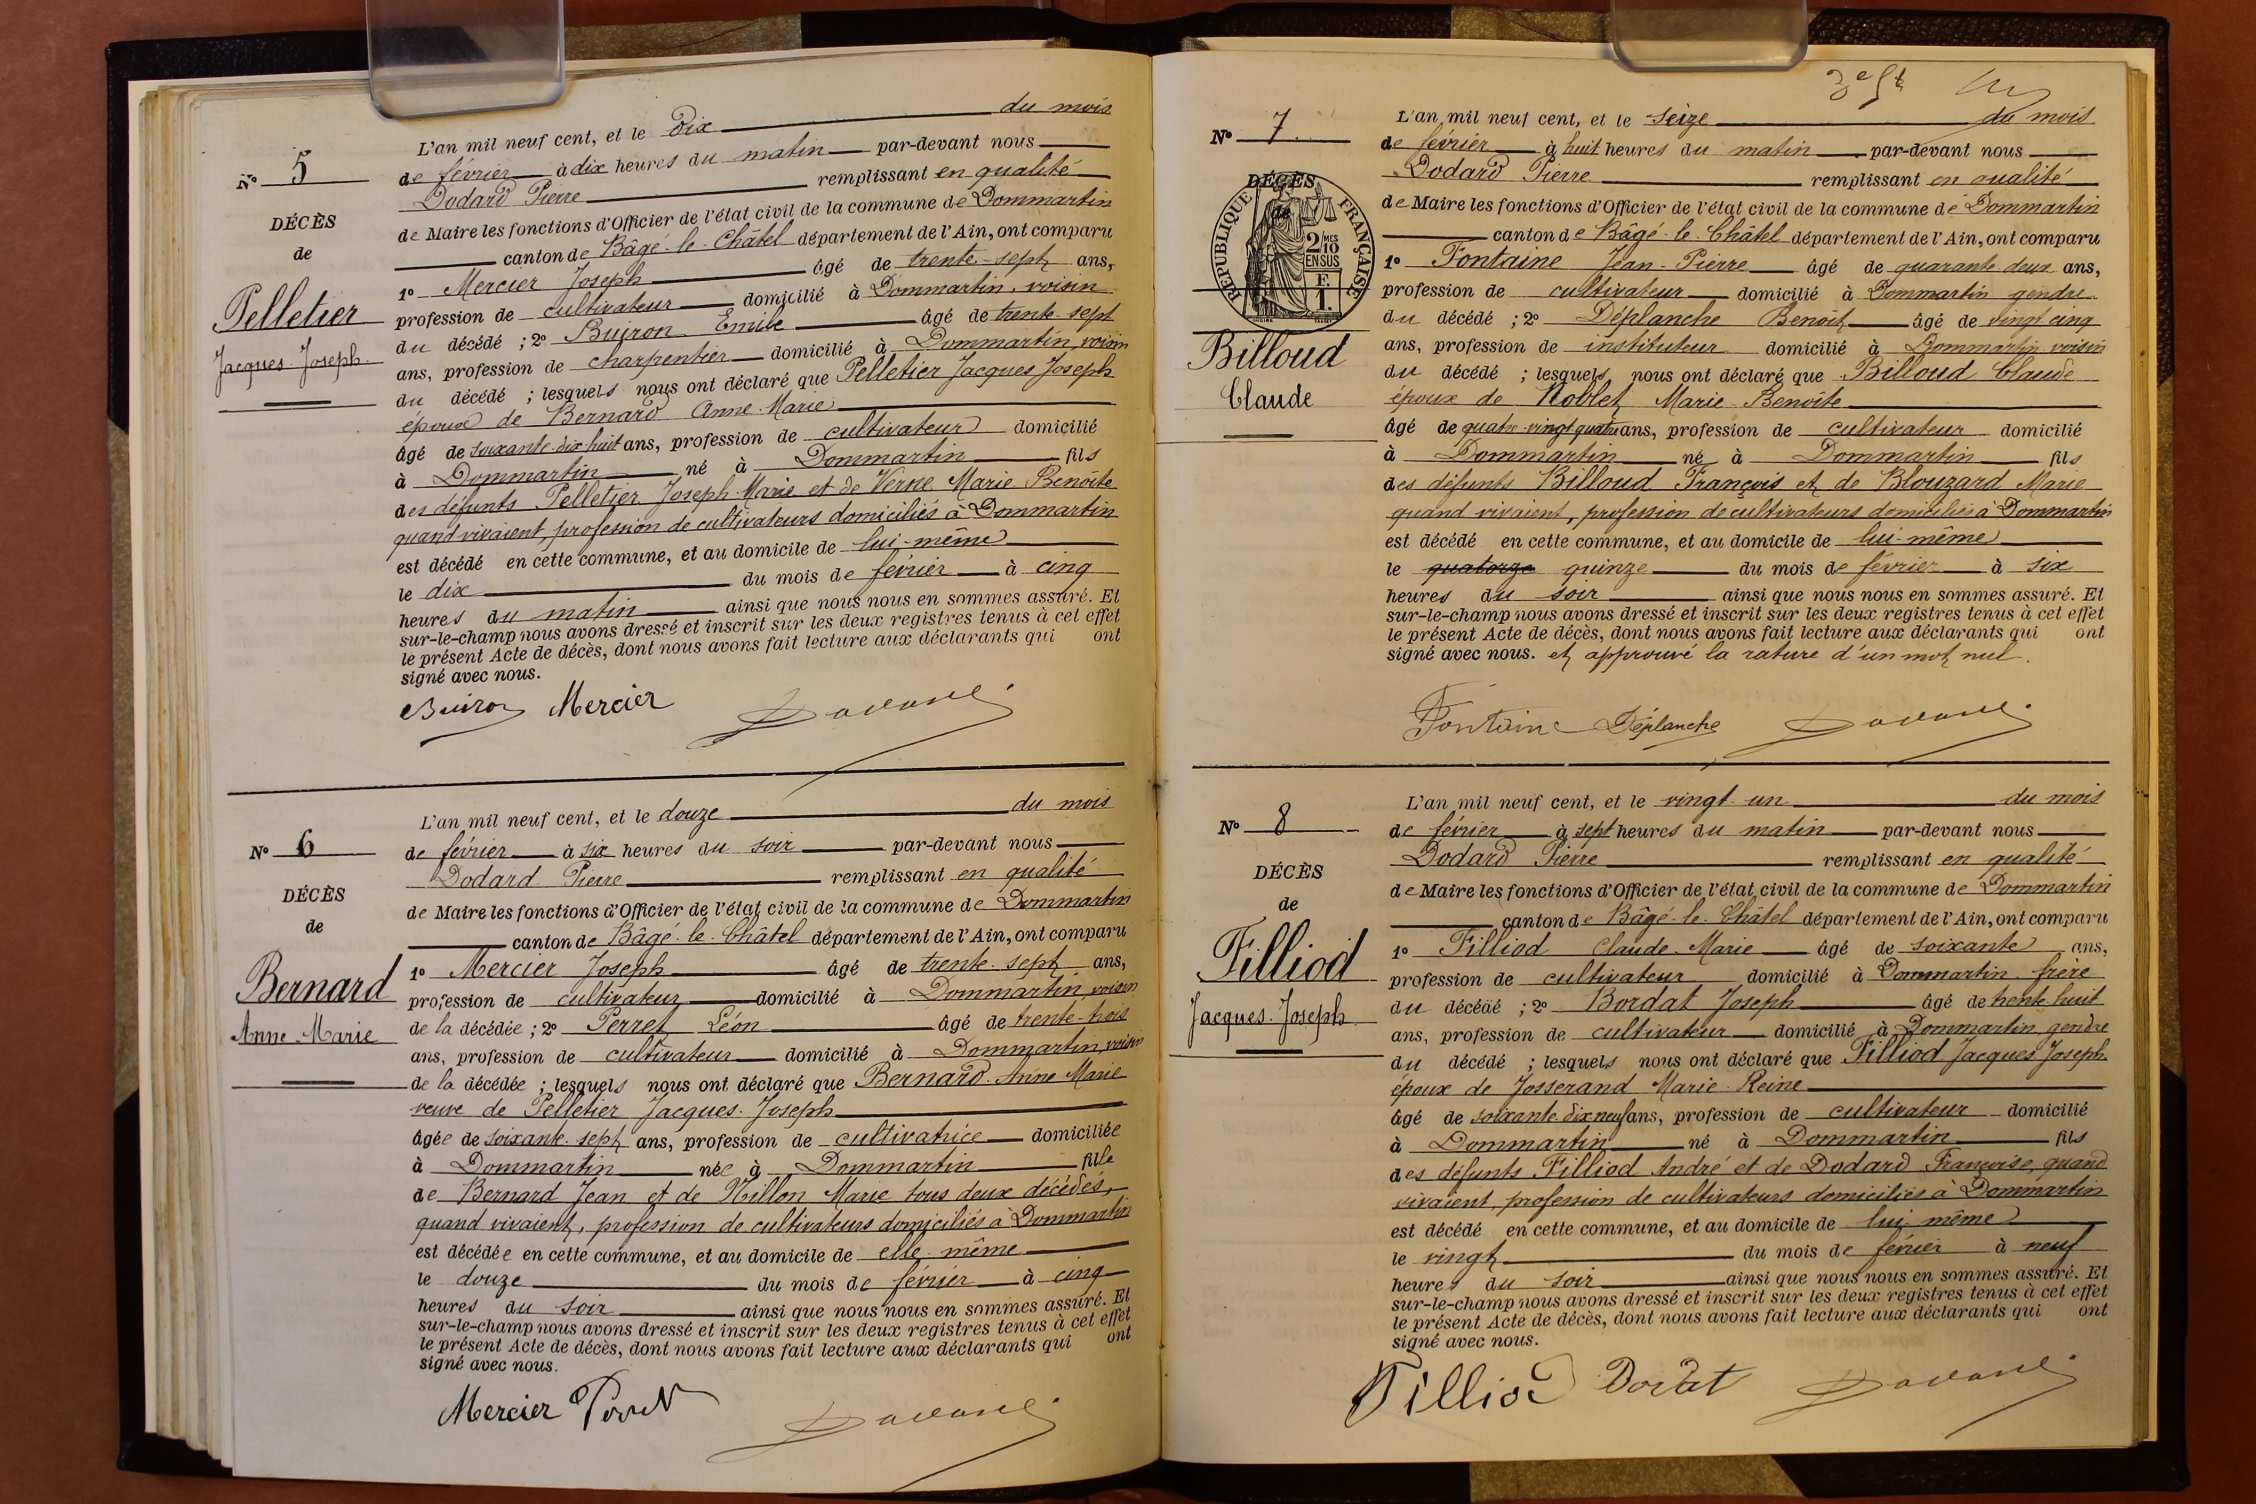 N° 5
DÉCÈS
de
Pelletier
Jacques-Joseph
L'an mil neuf cent, et le dix du mois
de février à dix heures du matin par-devant nous
Dodard Pierre remplissant en qualité
de Maire les fonctions d'Officier de l'état civil de la commune de Dommartin
canton de Bâgé-le-Châtel département de l'Ain, ont comparu
1° Mercier Joseph âgé de trente-sept ans,
profession de cultivateur domicilié à Dommartin, voisin
du décédé ; 2° Buiron Emile âgé de trente-sept
ans, profession de charpentier domicilié à Dommartin, voisin
du décédé ; lesquels nous ont déclaré que Pelletier Jacques Joseph
époux de Bernard Anne-Marie
âgé de soixante-dix-huit ans, profession de cultivateur domicilié
à Dommartin né à Dommartin fils
des défunts Pelletier Joseph-Marie et de Verne Marie Benoîte
quand vivaient, profession de cultivateurs domiciliés à Dommartin
est décédé en cette commune, et au domicile de lui-même
le dix du mois de février à cinq
heures du matin ainsi que nous nous en sommes assuré. Et
sur-le-champ nous avons dressé et inscrit sur les deux registres tenus à cet effet
le présent Acte de décès, dont nous avons fait lecture aux déclarants qui ont
signé avec nous.
Buiron Mercier Dodard
N° 6
DÉCÈS
de
Bernard
Anne-Marie
L'an mil neuf cent, et le douze du mois
de février à six heures du soir par-devant nous
Dodard Pierre remplissant en qualité
de Maire les fonctions d'Officier de l'état civil de la commune de Dommartin
canton de Bâgé-le-Châtel département de l'Ain, ont comparu
1° Mercier Joseph âgé de trente-sept ans,
profession de cultivateur domicilié à Dommartin, voisin
de la décédée ; 2° Perret Léon âgé de trente-trois
ans, profession de cultivateur domicilié à Dommartin, voisin
de la décédée ; lesquels nous ont déclaré que Bernard Anne Marie
veuve de Pelletier Jacques-Joseph
âgée de soixante-sept ans, profession de cultivatrice domiciliée
à Dommartin née à Dommartin fille
de Bernard Jean et de Nillon Marie tous deux décédés,
quand vivaient, profession de cultivateurs domiciliés à Dommartin
est décédée en cette commune, et au domicile de elle-même
le douze du mois de février à cinq
heures du soir ainsi que nous nous en sommes assuré. Et
sur-le-champ nous avons dressé et inscrit sur les deux registres tenus à cet effet
le présent Acte de décès, dont nous avons fait lecture aux déclarants qui ont
signé avec nous.
Mercier Perret Dodard
3e ft
N° 7
DÉCÈS
de
RÉPUBLIQUE FRANÇAISE
2/10 MES EN SUS
F. 1.
Billoud
Claude
L'an mil neuf cent, et le seize du mois
de février à huit heures du matin par-devant nous
Dodard Pierre remplissant en qualité
de Maire les fonctions d'Officier de l'état civil de la commune de Dommartin
canton de Bâgé-le-Châtel département de l'Ain, ont comparu
1° Fontaine Jean-Pierre âgé de quarante deux ans,
profession de cultivateur domicilié à Dommartin gendre
du décédé ; 2° Déplanche Benoit âgé de vingt cinq
ans, profession de instituteur domicilié à Dommartin voisin
du décédé ; lesquels nous ont déclaré que Billoud Claude
époux de Noblet Marie-Benoite
âgé de quatre-vingt quatre ans, profession de cultivateur domicilié
à Dommartin né à Dommartin fils
des défunts Billoud François et de Blouzard Marie
quand vivaient, profession de cultivateurs domiciliés à Dommartin
est décédé en cette commune, et au domicile de lui-même
le quatorze quinze du mois de février à six
heures du soir ainsi que nous nous en sommes assuré. Et
sur-le-champ nous avons dressé et inscrit sur les deux registres tenus à cet effet
le présent Acte de décès, dont nous avons fait lecture aux déclarants qui ont
signé avec nous. et approuvé la rature d'un mot nul.
Fontaine Déplanche Dodard
N° 8
DÉCÈS
de
Filliod
Jacques-Joseph
L'an mil neuf cent, et le vingt-un du mois
de février à sept heures du matin par-devant nous
Dodard Pierre remplissant en qualité
de Maire les fonctions d'Officier de l'état civil de la commune de Dommartin
canton de Bâgé-le-Châtel département de l'Ain, ont comparu
1° Filliod Claude-Marie âgé de soixante ans,
profession de cultivateur domicilié à Dommartin frère
du décédé ; 2° Bordat Joseph âgé de trente-huit
ans, profession de cultivateur domicilié à Dommartin, gendre
du décédé ; lesquels nous ont déclaré que Filliod Jacques Joseph
époux de Josserand Marie-Reine
âgé de soixante dix neuf ans, profession de cultivateur domicilié
à Dommartin né à Dommartin fils
des défunts Filliod André et de Dodard Françoise, quand
vivaient, profession de cultivateurs domiciliés à Dommartin
est décédé en cette commune, et au domicile de lui-même
le vingt du mois de février à neuf
heures du soir ainsi que nous nous en sommes assuré. Et
sur-le-champ nous avons dressé et inscrit sur les deux registres tenus à cet effet
le présent Acte de décès, dont nous avons fait lecture aux déclarants qui ont
signé avec nous.
Filliod Bordat Dodard